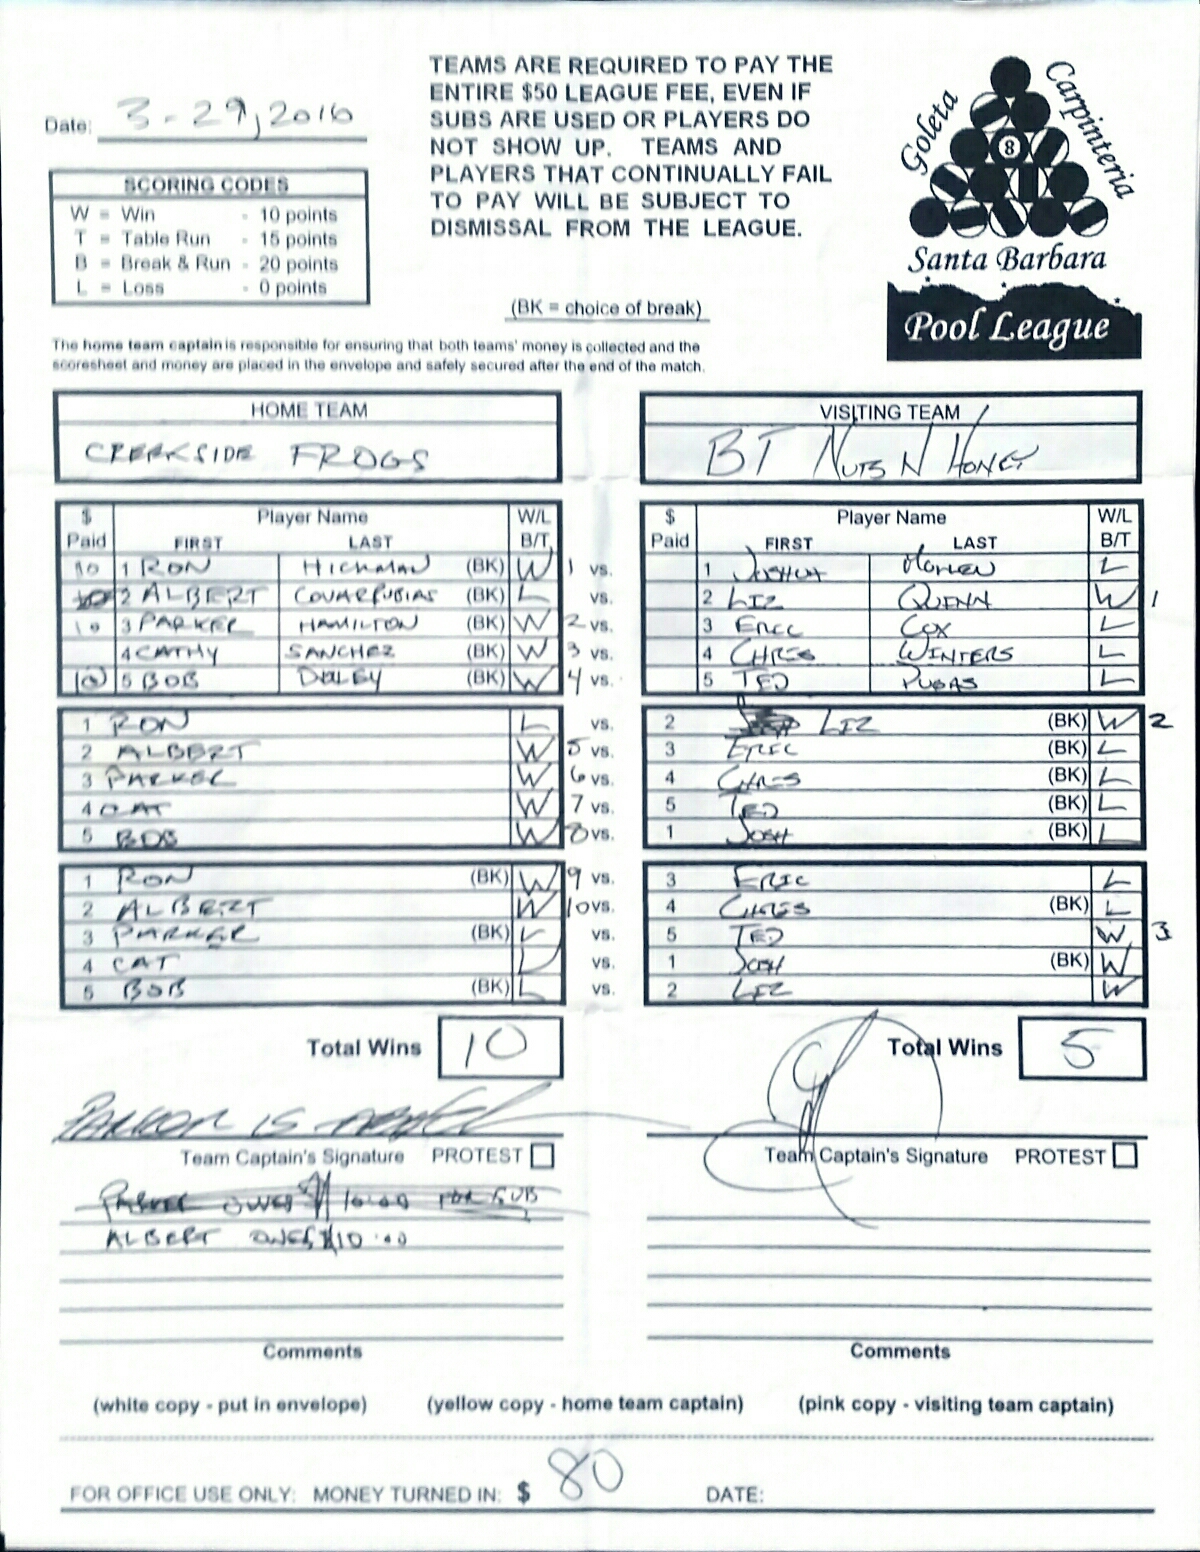 Date: 3-29, 2016
TEAMS ARE REQUIRED TO PAY THE
ENTIRE $50 LEAGUE FEE, EVEN IF
SUBS ARE USED OR PLAYERS DO
NOT SHOW UP. TEAMS AND
PLAYERS THAT CONTINUALLY FAIL
TO PAY WILL BE SUBJECT TO
DISMISSAL FROM THE LEAGUE.
Goleta
Carpinteria
8
Santa Barbara
Pool League
SCORING CODES
W = Win - 10 points
T = Table Run - 15 points
B = Break & Run - 20 points
L = Loss - 0 points
(BK = choice of break)
The home team captain is responsible for ensuring that both teams' money is collected and the
scoresheet and money are placed in the envelope and safely secured after the end of the match.
HOME TEAM
CREEKSIDE FROGS
VISITING TEAM
BT NUTS N HONEY
$ Paid Player Name FIRST LAST W/L B/T
$ Paid Player Name FIRST LAST W/L B/T
10 1 RON HICKMAN (BK) W 1 vs. 1 JOSHUA L
2 ALBERT COVARRUBIAS (BK) L vs. 2 LIZ QUINN W 1
10 3 PARKER HAMILTON (BK) W 2 vs. 3 ERIC COX L
4 CATHY SANCHEZ (BK) W 3 vs. 4 CHRIS WINTERS L
10 5 BOB DALEY (BK) W 4 vs. 5 TED PUGAS L
1 RON L vs. 2 LIZ (BK) W 2
2 ALBERT W 5 vs. 3 ERIC (BK) L
3 PARKER W 6 vs. 4 CHRIS (BK) L
4 CAT W 7 vs. 5 TED (BK) L
5 BOB W 8 vs. 1 JOSH (BK) L
1 RON (BK) W 9 vs. 3 ERIC L
2 ALBERT W 10 vs. 4 CHRIS (BK) L
3 PARKER (BK) L vs. 5 TED W 3
4 CAT L vs. 1 JOSH (BK) W
5 BOB (BK) L vs. 2 LIZ W
Total Wins 10
Total Wins 5
PARKER IS
Team Captain's Signature PROTEST
Team Captain's Signature PROTEST
PARKER OWES 10.00 FOR SUB
ALBERT OWES $10.00
Comments
Comments
(white copy - put in envelope) (yellow copy - home team captain) (pink copy - visiting team captain)
FOR OFFICE USE ONLY: MONEY TURNED IN: $ 80 DATE: